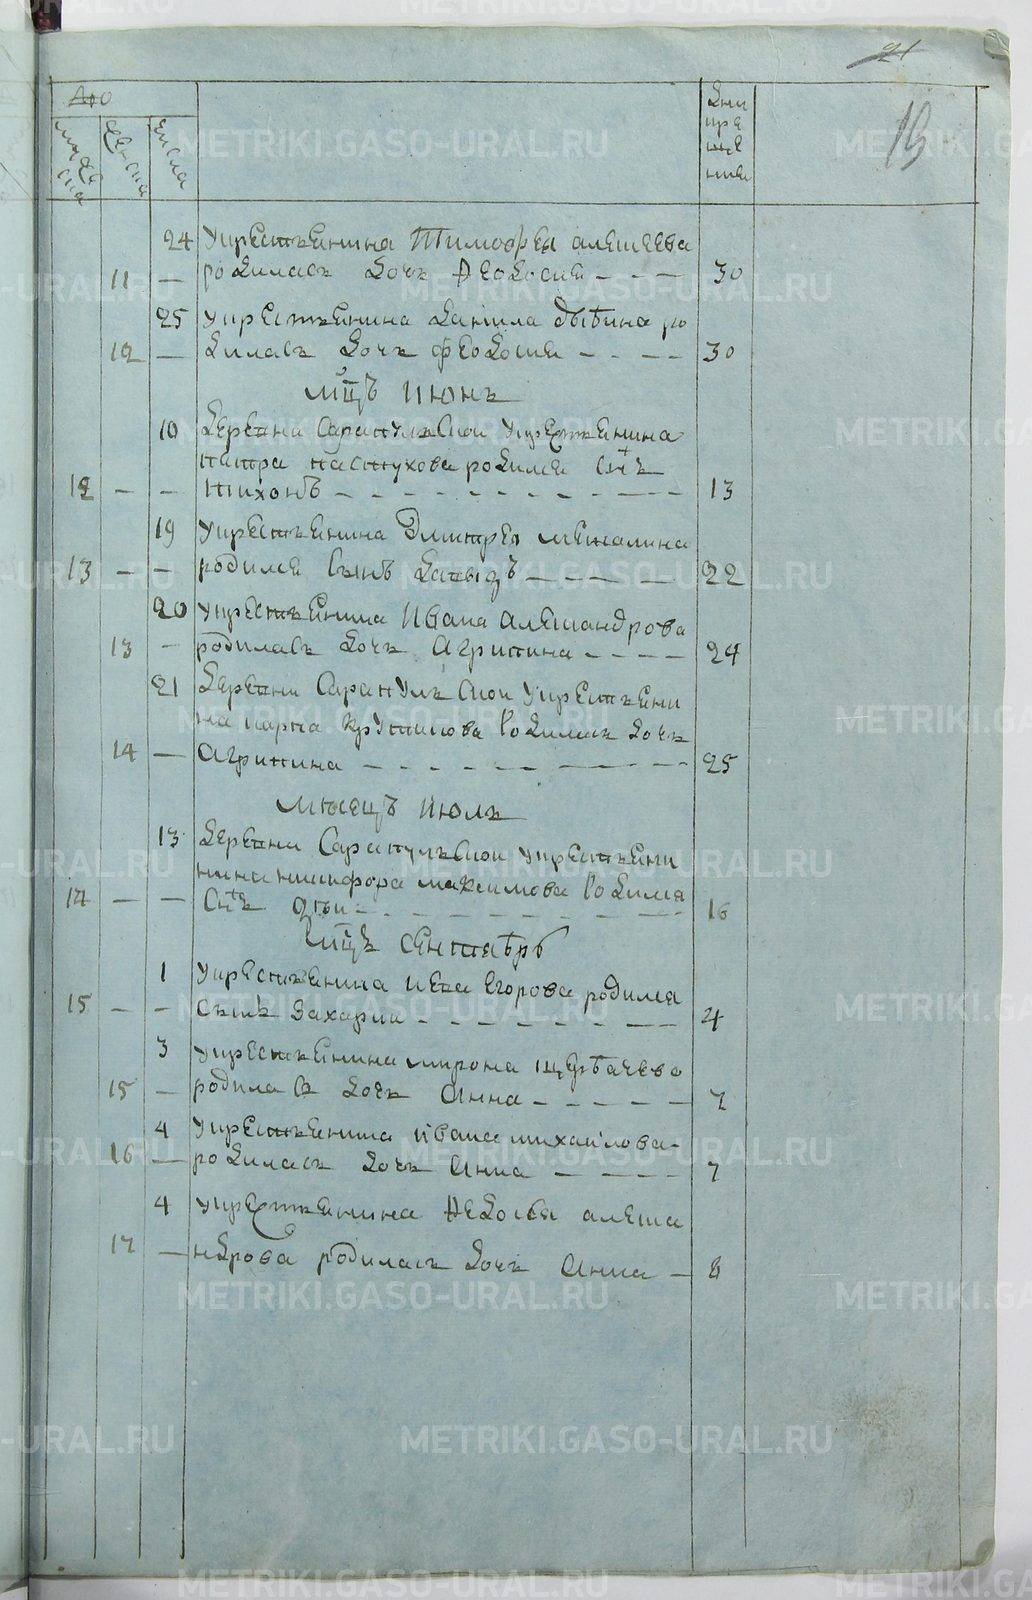 21
13
мужеска
женска
числа
крещение
24 укрестьенина Тимофея алешеева
11 — родилась дочь Феодосия — — — 30
25 укрестьенина данила
12 — дилась дочь феодосия — — — — 30
мцъ июнь
10 деревни Сарапулькои укрестьенина
петра пастухова родился снъ
12 — — тихонъ — — — — — — — 13
19 укрестьенина Дмитрея мешалина
13 — — родился сынъ давыдъ — — — — 22
20 укрестьенина Ивана александрова
13 — родилась дочь Агрипина — — — — 24
21 деревни Сарапулькои укрестьени
на карпа крупинова родилась дочь
14 — Агрипина — — — — — — — 25
месецъ июль
13 деревни Сарапулькои укрестьени
нина никифора максимова родился
14 — — Снъ — — — — — — — 16
мцъ сентябрь
1 укрестьенина иева егорова родился
15 — — сынъ Захария — — — — — — 4
3 укрестьенина мирона щербачева
15 — родилась дочь Анна — — — — — 7
4 укрестьенина ивана михаилова
16 — родилась дочь Анна — — — — 7
4 укрестьенина Федосея алекса
17 — ндрова родилась дочь Анна — 8
METRIKI.GASO-URAL.RU